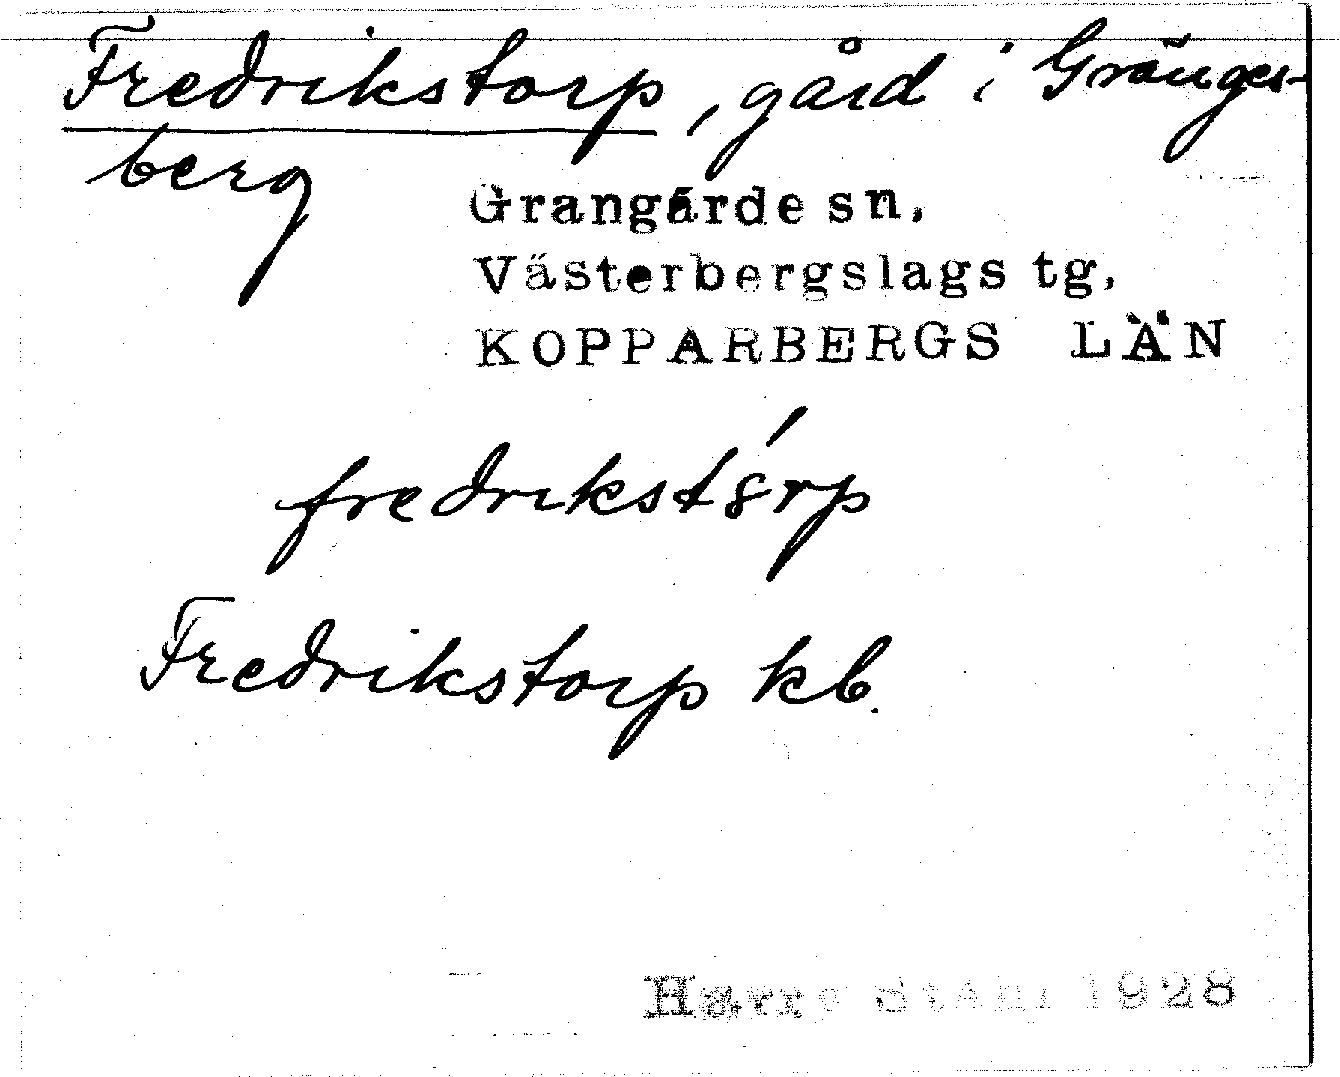 Fredrikstorp, gård i Gränges-
berg
Grangärde sn,
Västerbergslags tg,
KOPPARBERGS LÄN
fredrikstórp
Fredrikstorp kb.
Harry Ståhl 1928